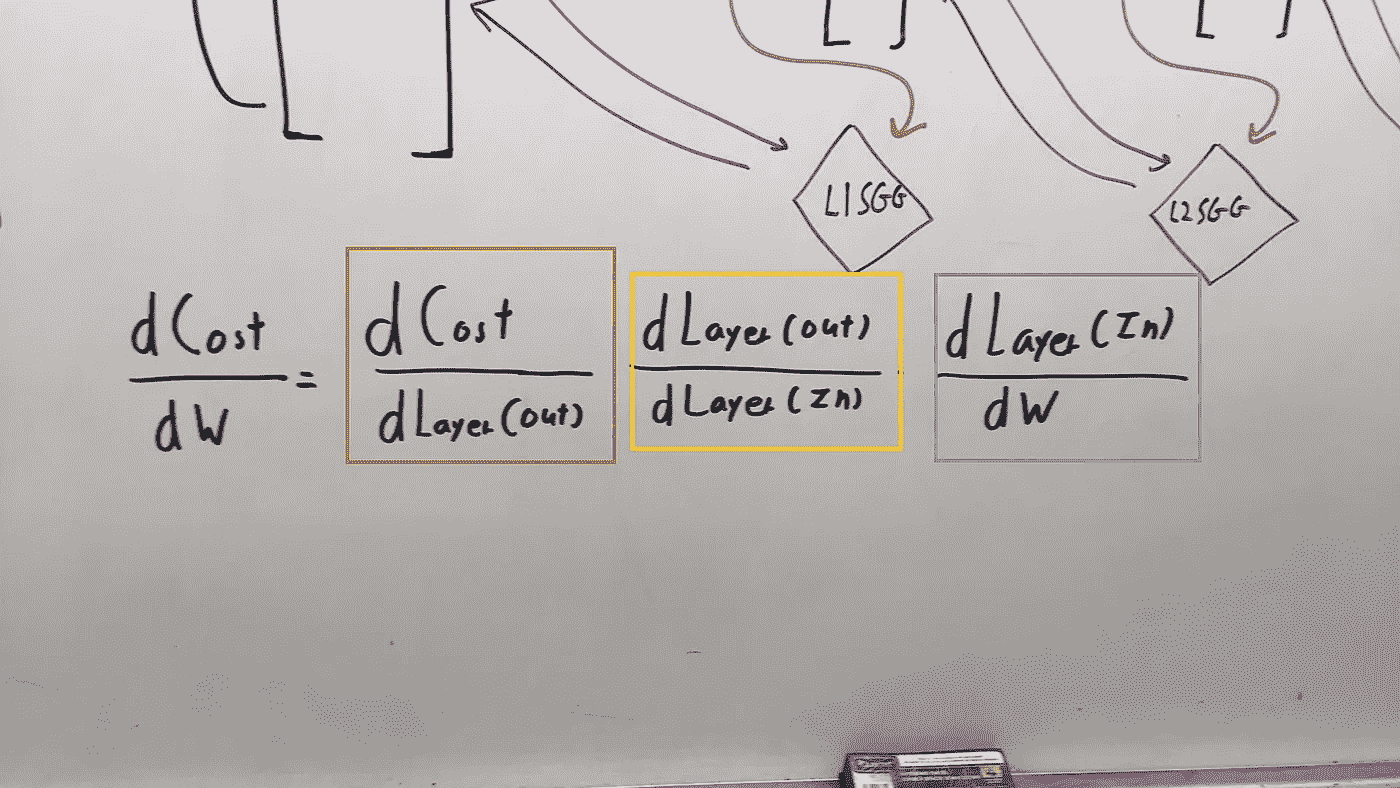 L1SGG
L2SGG
dCost
dW
=
dCost
dLayer(out)
dLayer(out)
dLayer(In)
dLayer(In)
dW